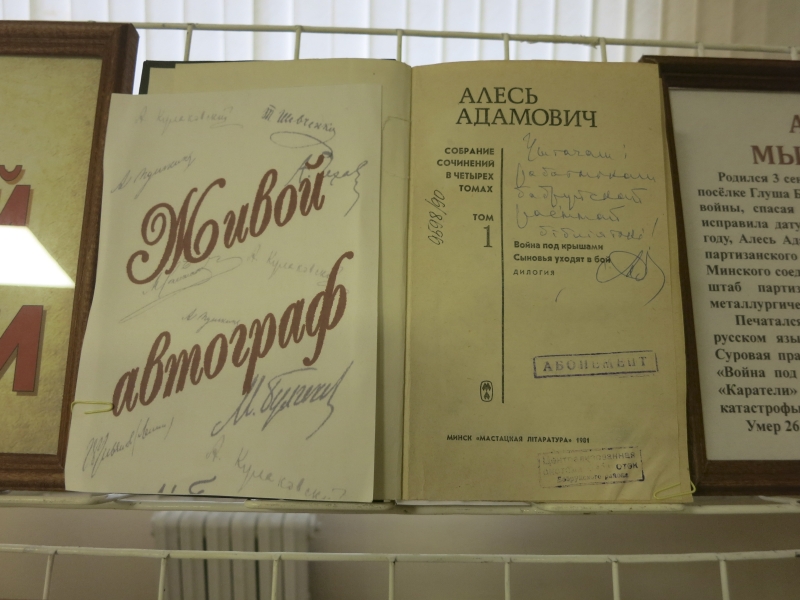 Т. Шевченко
Живой
автограф
А. Кулаковский
М. Булгаков
А. Кулаковский
АЛЕСЬ
АДАМОВИЧ
СОБРАНИЕ
СОЧИНЕНИЙ
В ЧЕТЫРЕХ
ТОМАХ
ТОМ
1
Война под крышами
Сыновья уходят в бой
ДИЛОГИЯ
Читачам і
работникам
бабруйской
раённай
бібліятэкі!
АБОНЕМЕНТ
МИНСК «МАСТАЦКАЯ ЛІТАРАТУРА» 1981
Й
И
А
МЫ
Родился 3 сен
посёлке Глуша Б
войны, спасая
исправила дату
году, Алесь Ад
партизанского
Минского соед
штаб партиз
металлургичес
Печатался
русском язы
Суровая пра
«Война под
«Каратели»
катастрофы
Умер 26